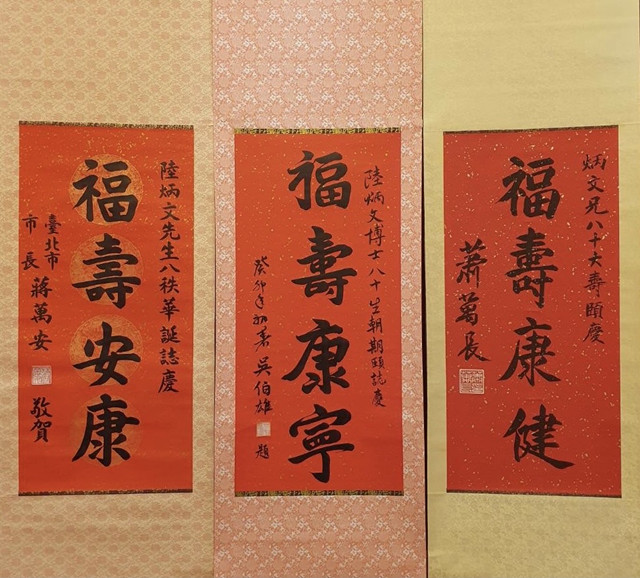 炳文兄八十大壽頤慶
福壽康健
蕭萬長
陸炳文博士八十生朝期頤誌慶
福壽康寧
癸卯年初春 吳伯雄 題
陸炳文先生八秩華誕誌慶
福壽安康
臺北市
市長 蔣萬安 敬賀